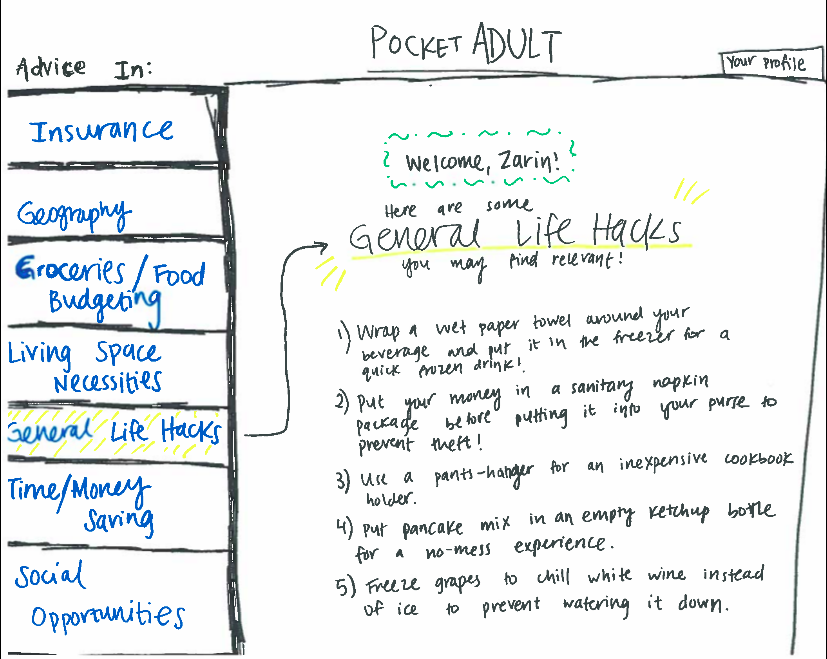 POCKET ADULT
Advice In:
Your profile
Insurance
Geography
Groceries/Food
Budgeting
Living Space
Necessities
General Life Hacks
Time/Money
Saving
Social
Opportunities
Welcome, Zarin!
Here are some
General Life Hacks
you may find relevant!
1) Wrap a wet paper towel around your
beverage and put it in the freezer for a
quick frozen drink!
2) Put your money in a sanitary napkin
package before putting it into your purse to
prevent theft!
3) Use a pants-hanger for an inexpensive cookbook
holder.
4) Put pancake mix in an empty ketchup bottle
for a no-mess experience.
5) Freeze grapes to chill white wine instead
of ice to prevent watering it down.